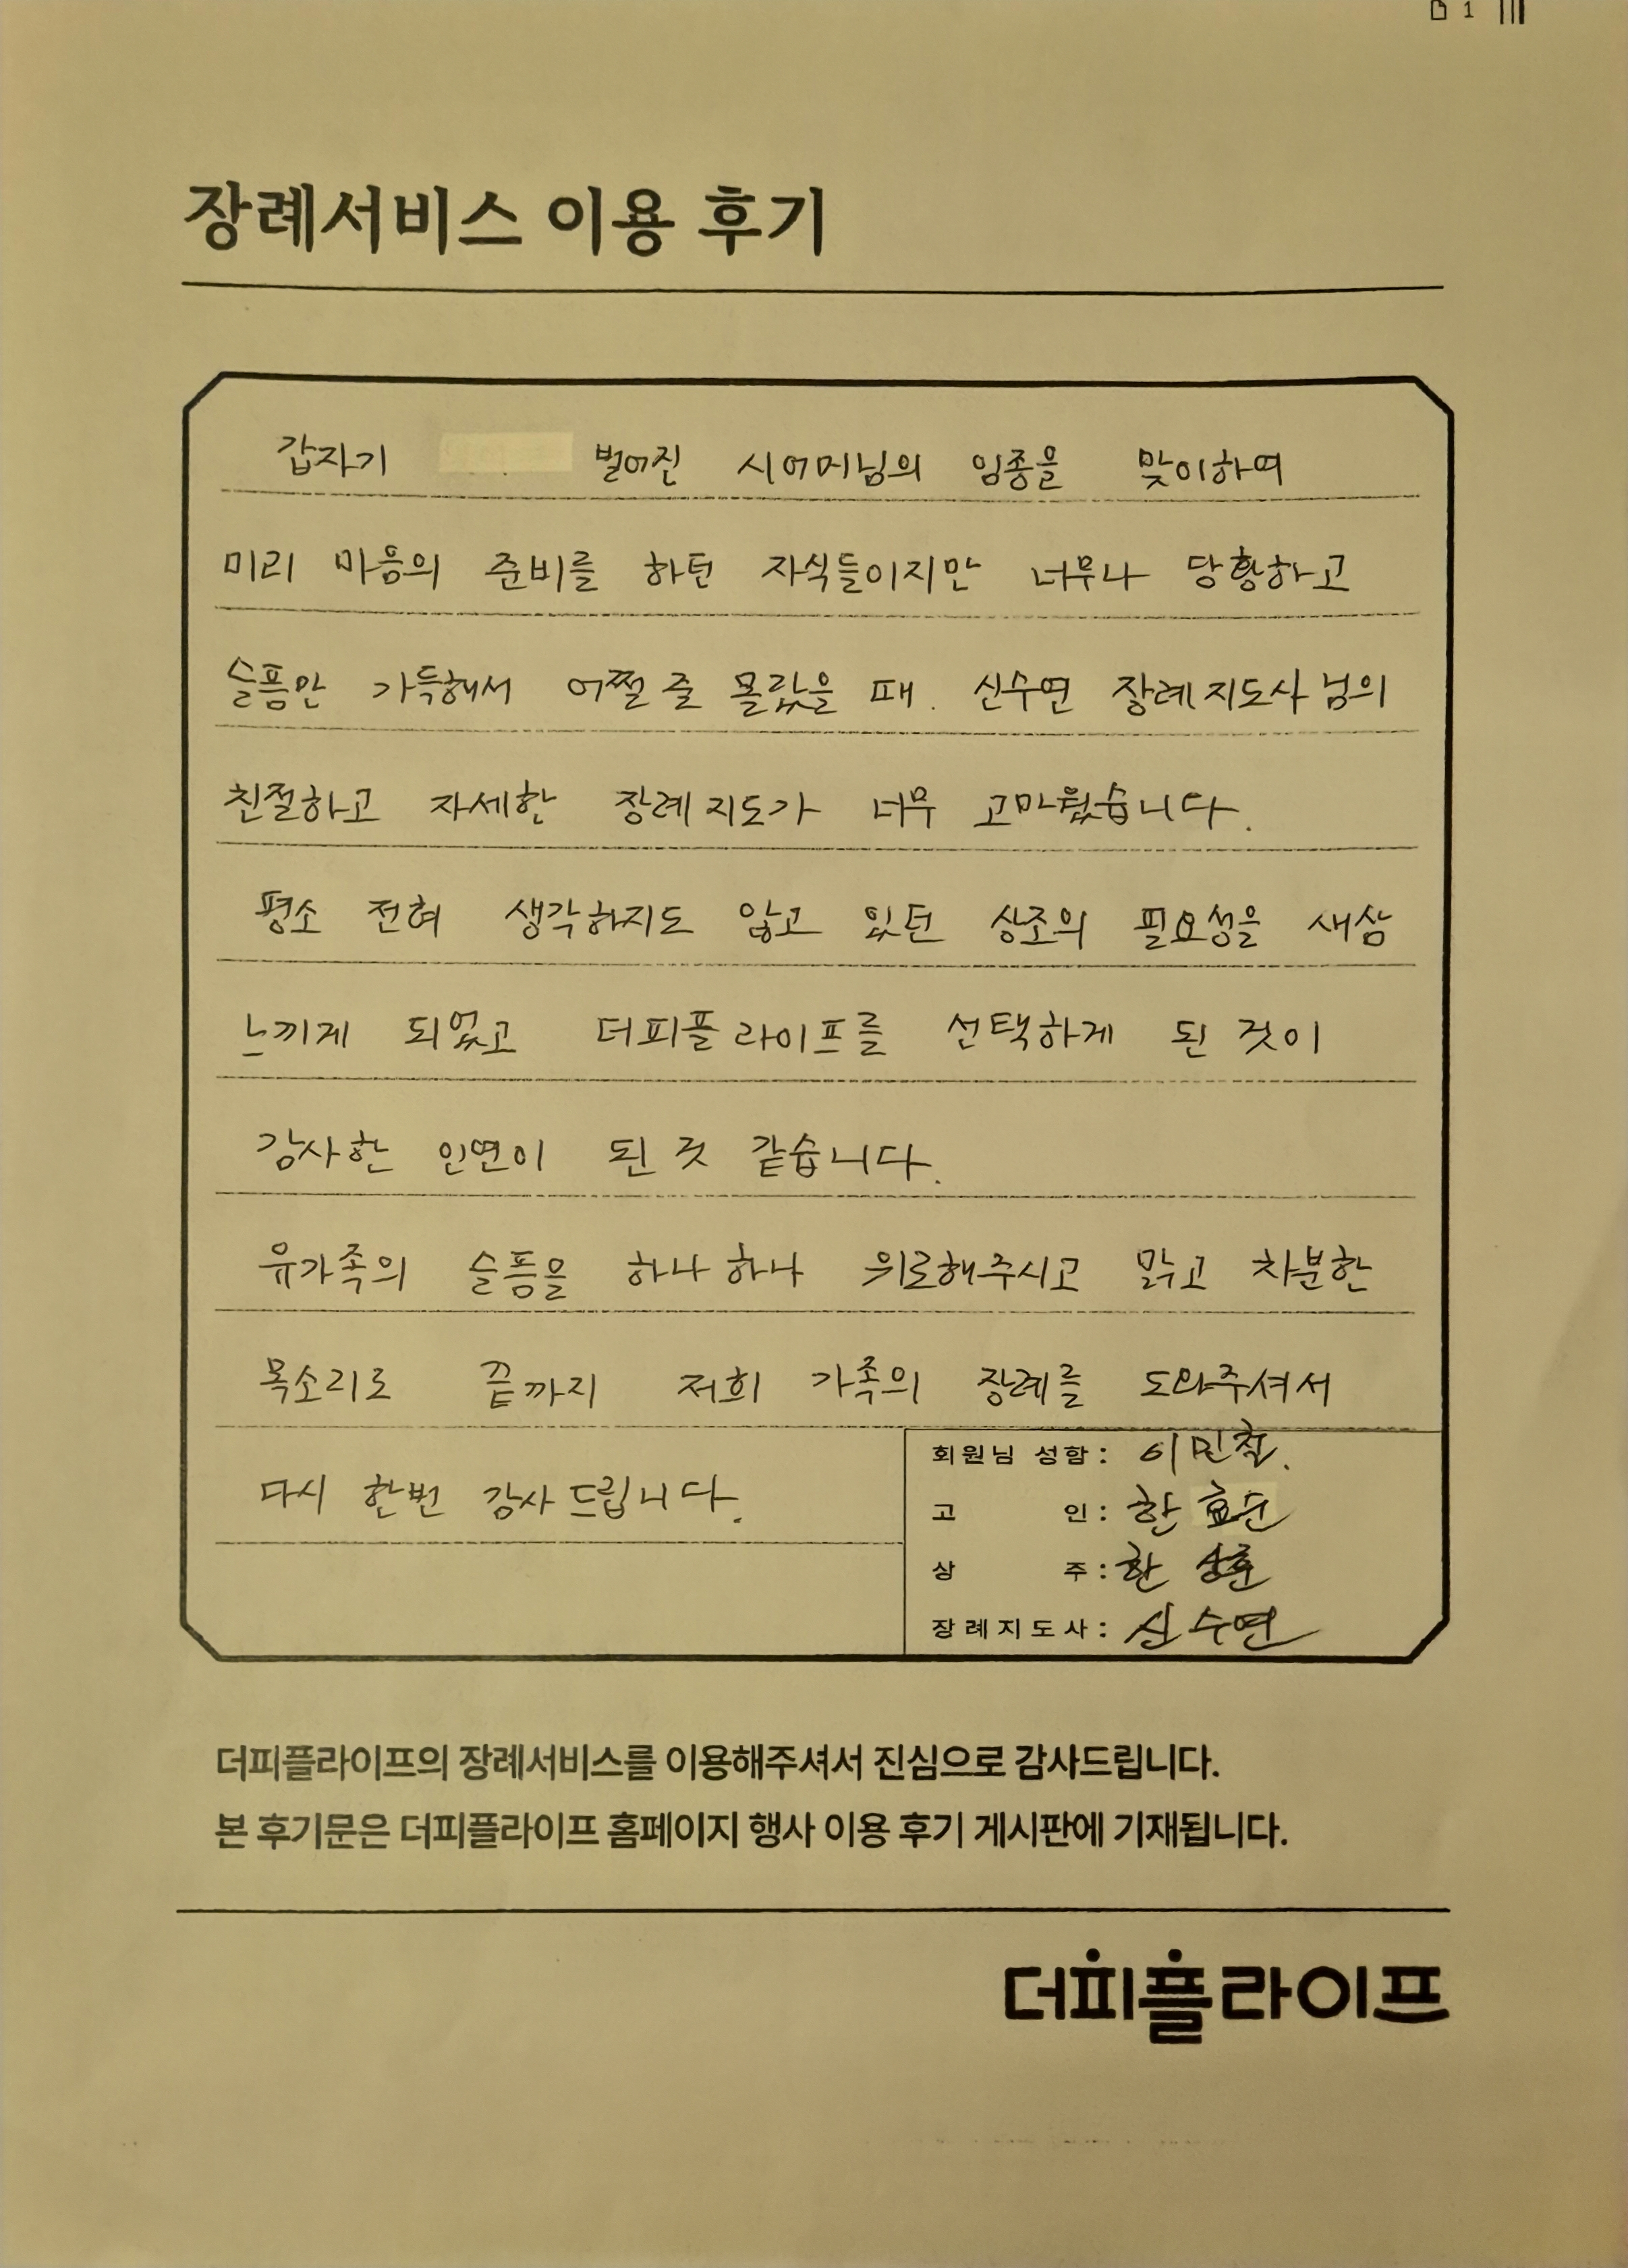 1
장례서비스 이용 후기
갑자기 벌어진 시어머님의 임종을 맞이하여
미리 마음의 준비를 하던 자식들이지만 너무나 당황하고
슬픔만 가득해서 어쩔 줄 몰랐을 때. 신수연 장례지도사님의
친절하고 자세한 장례지도가 너무 고마웠습니다.
평소 전혀 생각하지도 않고 있던 상조의 필요성을 새삼
느끼게 되었고 더피플라이프를 선택하게 된 것이
감사한 인연이 된 것 같습니다.
유가족의 슬픔을 하나하나 위로해주시고 맑고 차분한
목소리로 끝까지 저희 가족의 장례를 도와주셔서
다시 한번 감사드립니다.
회원님 성함: 이민철.
고 인: 한효순
상 주: 한상훈
장례지도사: 신수연
더피플라이프의 장례서비스를 이용해주셔서 진심으로 감사드립니다.
본 후기문은 더피플라이프 홈페이지 행사 이용 후기 게시판에 기재됩니다.
더피플라이프